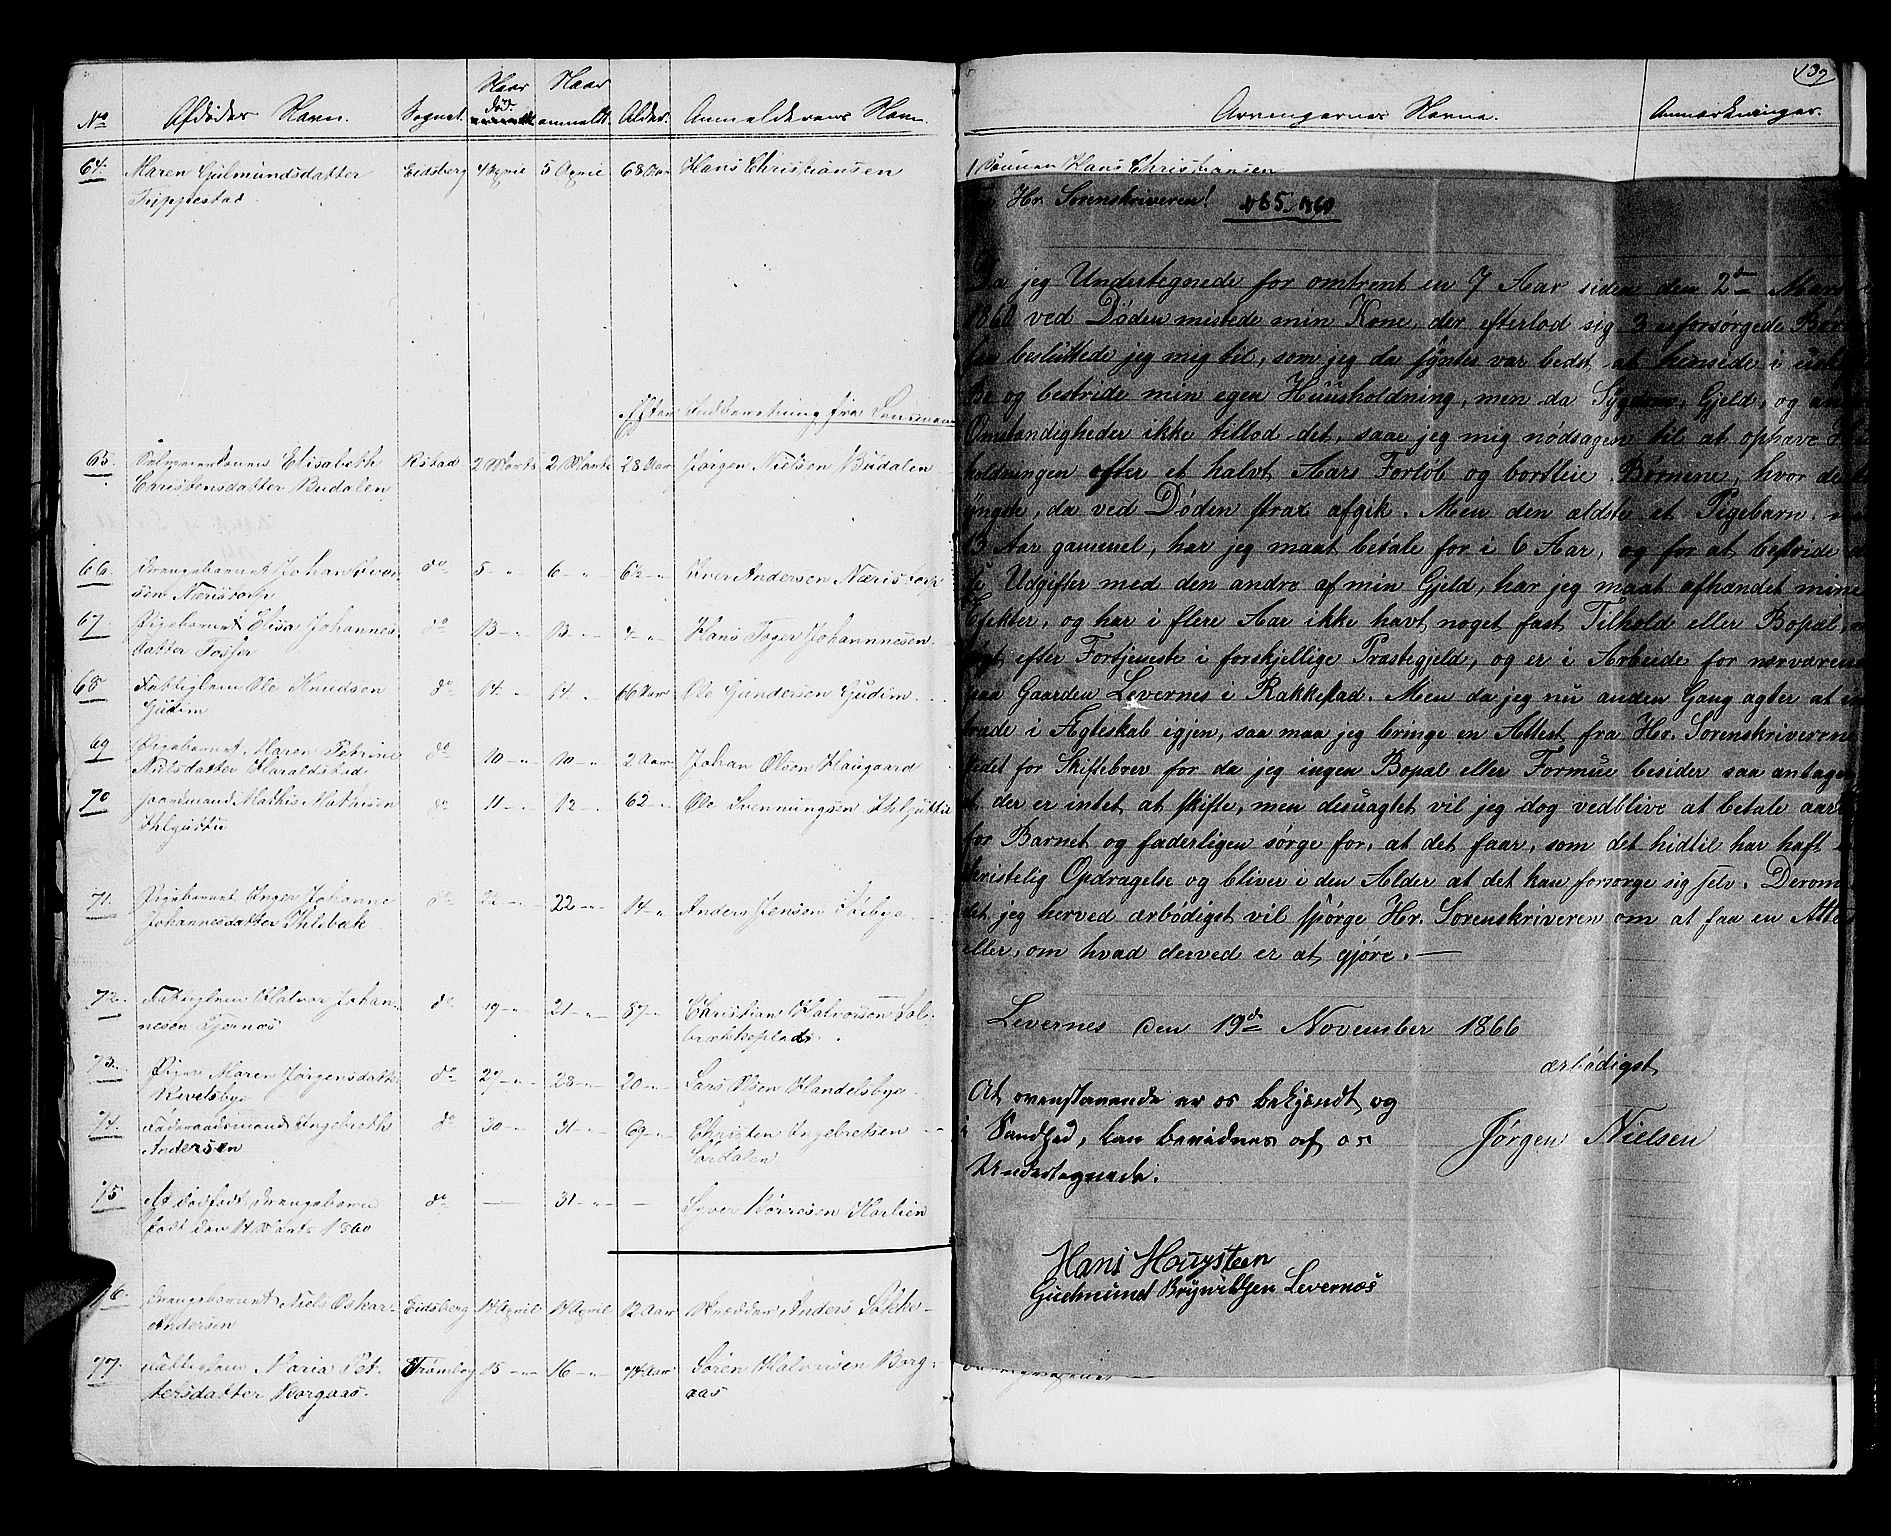 No Afdødes Navn. Sognet. Naar død. Naar anmeldt. Alder. Anmelderens Navn.
64. Maren Gulmundsdatter Eidsberg 4 April 5 April 68 Aar Hans Christiansen
Trippestad
Efter Indberetning fra Lensmanden
65. Selveierkonen Elisabeth Rstad 2 Marts 2 Marts 28 Aar Jørgen Nielsen Budalen
Christensdatter Budalen
66. Drengebarnet Johan Iver- do 5 - " 6 - " 6½ - " Iver Andersen Næristorp
sen Næristorp
67. Pigebarnet Elisa Johannes- do 13 - " 13 - " Hans Toger Johannnesen
datter Fosser
68. Fattiglem Ole Knudsen do 14 - " 14 - " 66 Aar Ole Gundersen Gudim
Gudim
69 Pigebarnet Maren Petrine do 10 - " 10 - " 2 Aar Johan Olsen Haugaard
Nielsdatter Haraldstad
70 Gaardmand Mathis Mathisen do 11 - " 12 - " 62 - " Ole Svenningsen
71. Pigebarnet Inger Johanne do 22 - " 14 - " Anders Jensen
Johannesdatter
72. Fattiglem Halvor Johan- do 19 - " 21 - " 87 - " Christian Halvorsen Sol-
nesen Tjernes
73. Pigen Maren Jørgensdatter do 27 - " 28 - " 20 - " Lars Olsen Handelsbye
Kivelsbye
74. Føderaadsmand Ingebreth do 30 - " 31 - " 69 - " Christen Ingebretsen
Andersen
75 Et dødfødt Drengebarn do — 31 - " — Iver Børresen
født den 14 Marts 1860
76. Drengebarnet Niels Oskar Eidsberg 14 April 14 April 12 Aar Anders
Andersen
77. Fattiglem Maria Pet- Trømborg 15 - " 16 - " 74 Aar Søren Halvorsen Borg-
tersdatter Borgaas. aas
139
Arvingernes Navne. Anmærkninger.
1 Sønnen Hans Christiansen
Hr. Sorenskriveren! 65-1860
Da jeg Undertegnede for omtrent en 7 Aar siden den 2den Marts
1860 ved Døden mistede min Kone, der efterlod sig 3 uforsørgede Børn
saa besluttede jeg mig til, som jeg da syntes var bedst at hensidde i uskif
Bo og bestride min egen Huusholdning, men da Sygdom, Gjeld, og andre
Omstændigheder ikke tillod det, saae jeg mig nødsagen til at ophæve Huus
holdningen efter et halvt Aars Forløb og bortleie Børnene, hvor det
yngste, da ved Døden strax afgik. Men den ældste et Pigebarn nu
13 Aar gammel, har jeg maat betale for i 6 Aar, og for at bestride
Udgifter med den andre af min Gjeld, har jeg maat afhændet mine
Efekter, og har i flere Aar ikke havt noget fast Tilhold eller Bopæl,
søgt efter Fortjeneste i forskjellige Præstegjeld, og er i Arbeide for nærværende
paa Gaarden Levernes i Rakkestad. Men da jeg nu anden Gang agter at ind
træde i Ægteskab igjen, saa maa jeg bringe en Attest fra Hr. Sorenskriveren
stedet for Skiftebrev for da jeg ingen Bopæl eller Formue besider saa antages
at der er intet at skifte, men desuagtet vil jeg dog vedblive at betale aarlig
for Barnet og faderligen sørge for, at det faar, som det hidtil har haft en
christelig Opdragelse og bliver i den Alder at det kan forsørge sig selv. Derom
det jeg herved ærbødigst vil spørge Hr. Sorenskriveren om at faa en Attest
eller, om hvad derved er at gjøre. —
Levernes den 19de November 1866
ærbødigst
Jørgen Nielsen
At ovenstaaende er os bekjendt og
i Sandhed, kan bevidnes af os
Undertegnede.
Hans Hougsteen
Gudmund Brynildsen Levernes